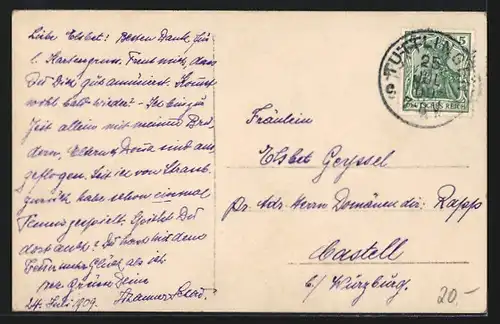 Liebe Elsbet! Besten Dank für
l. Kartengruss. Freut mich, dass
Du Dich gut amüsierst. Kommst
wohl bald wieder? Ich bin zur
Zeit allein mit meinen Brü-
dern, Eltern & sind aus-
geflogen. Seit ich von
zurück habe schon einmal
Tennis gespielt. Spielst Du
dort auch? Du hast mit dem
mehr Glück als ich
Dein
24. Juli 1909.
TUTTLINGEN
25
JUL
5
DEUTSCHES REICH
Fräulein
Elsbet Geyssel
pr. Adr. Herrn Domänendir. Rapp
Castell
b/ Würzburg.
20,-